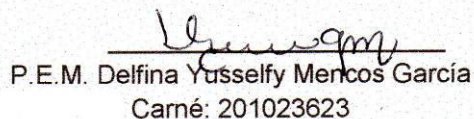 P.E.M. Delfina Yusselfy Mencos García
Carné: 201023623